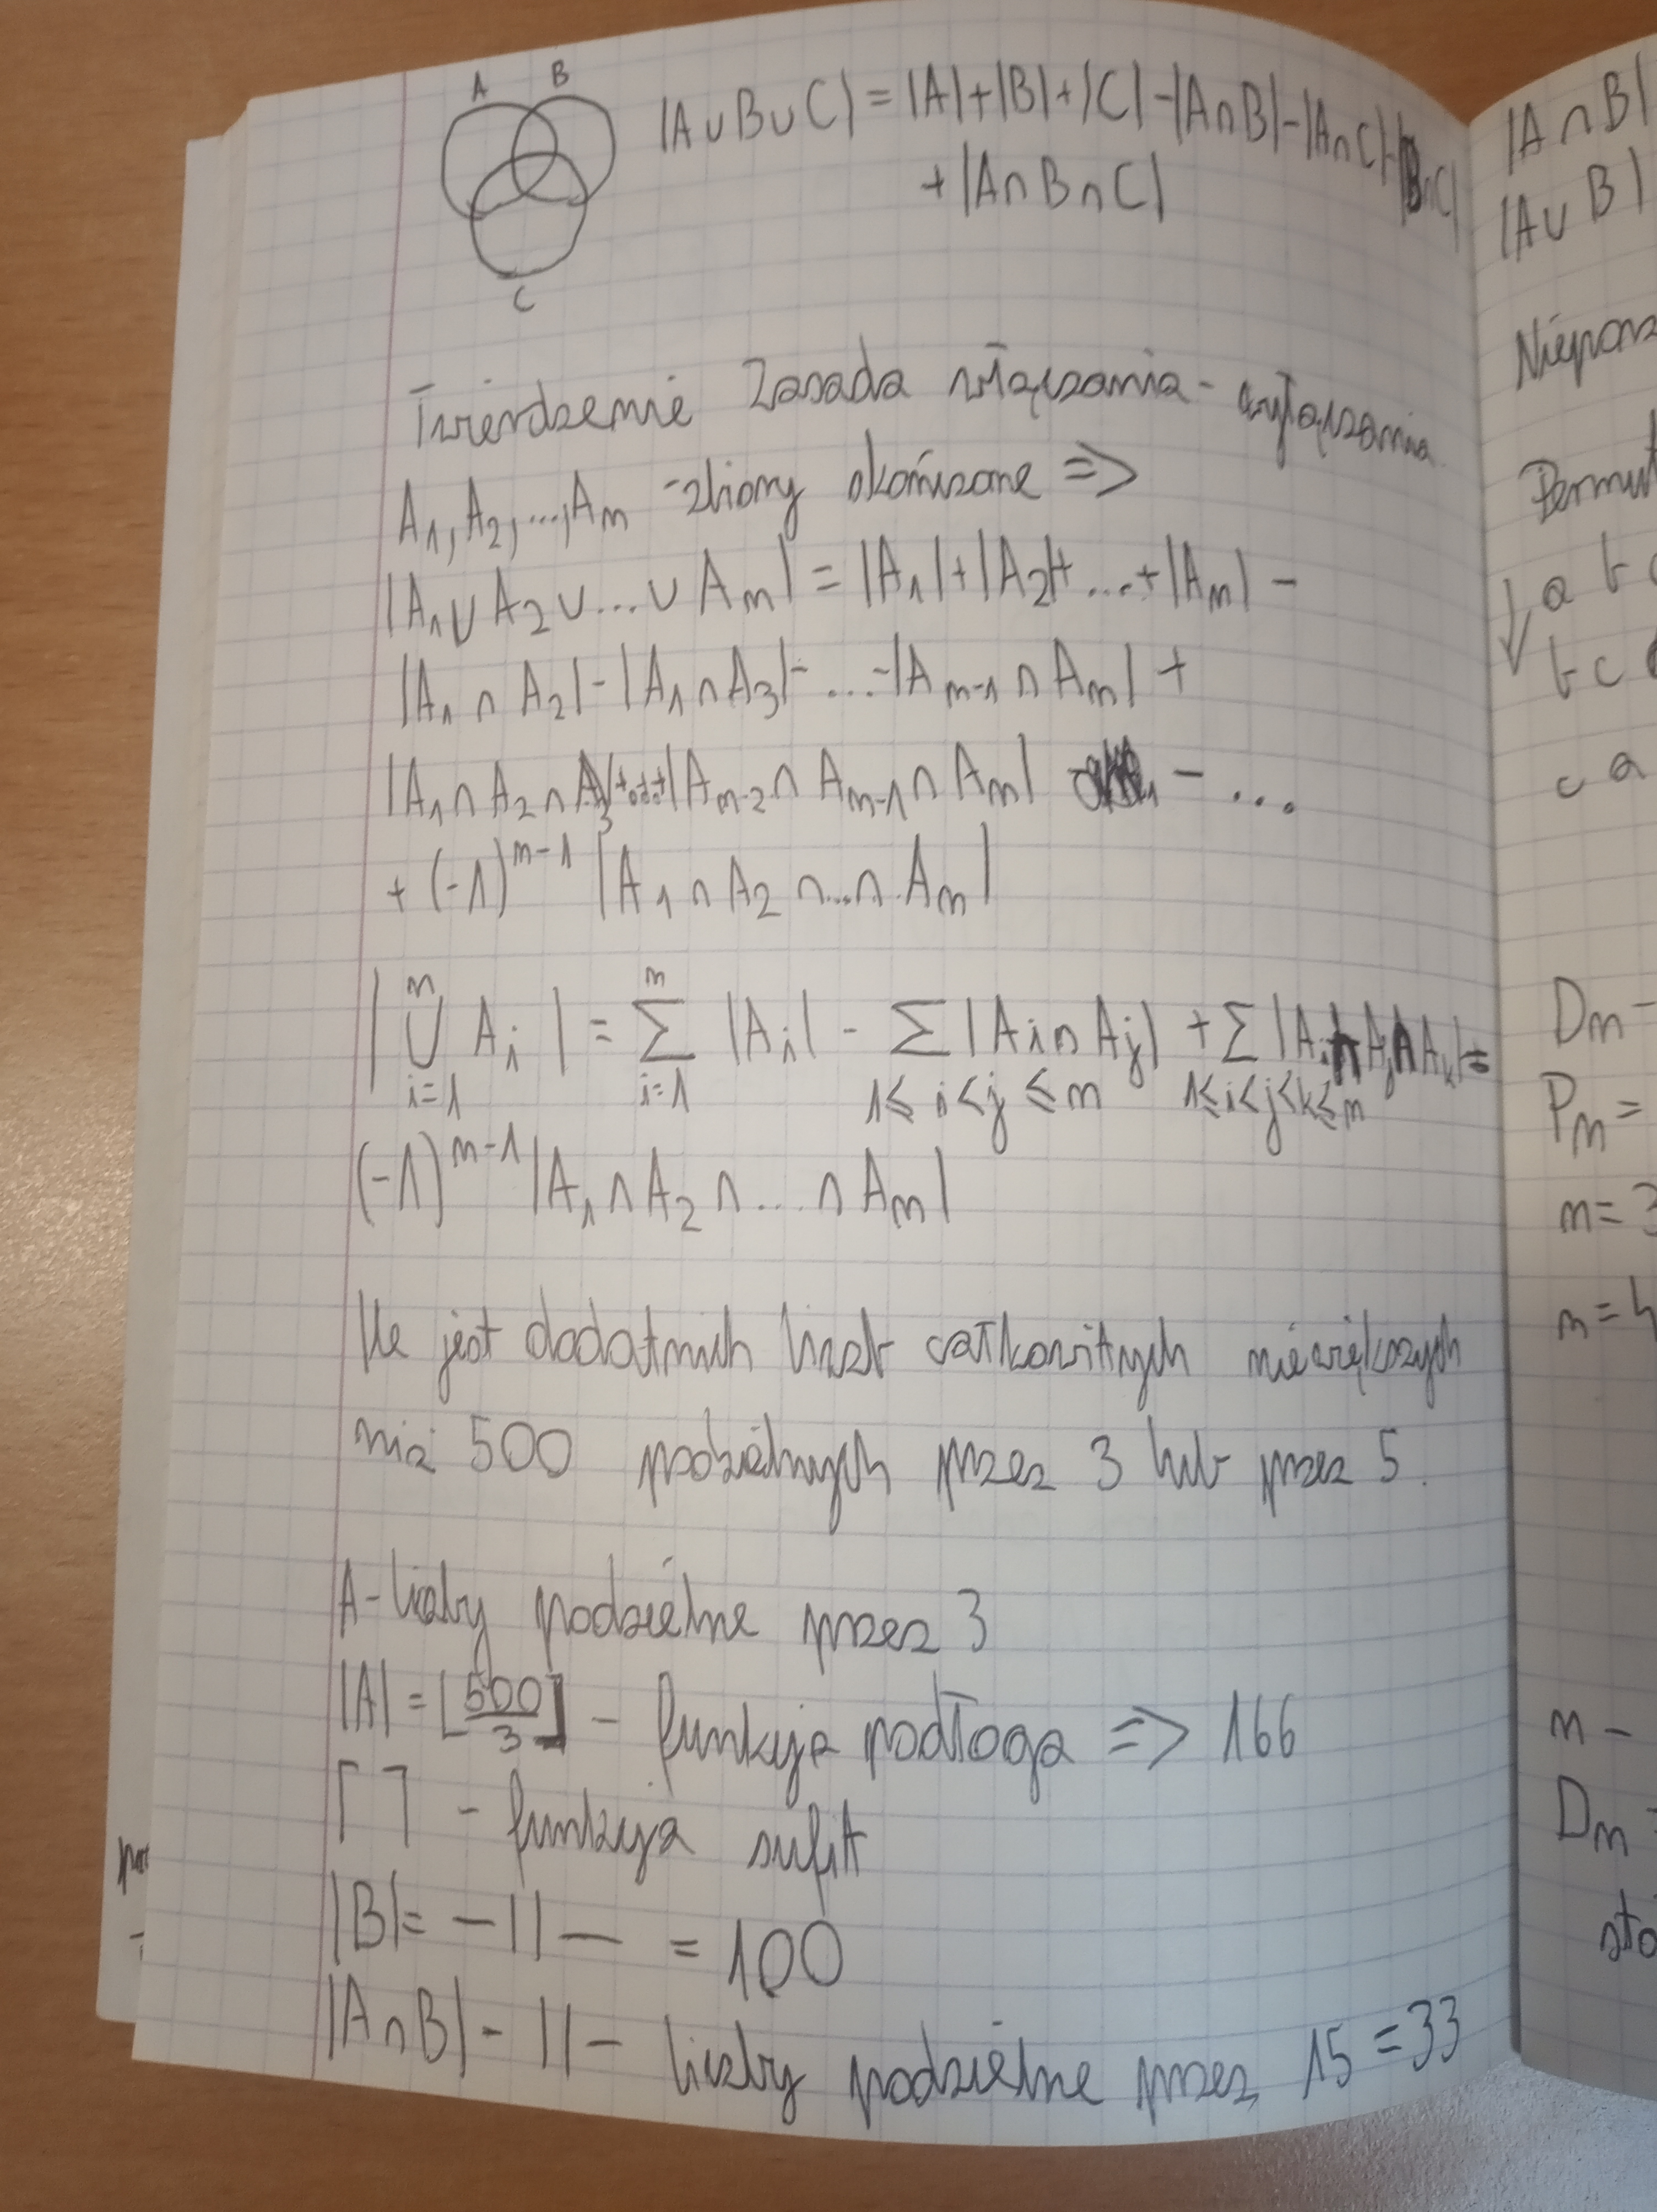 A B
|A∪B∪C| = |A|+|B|+|C|-|A∩B|-|A∩C|-|B∩C|
+|A∩B∩C|
C
Twierdzenie Zasada włączania-wyłączania
A₁, A₂, ..., Aₙ - zbiory skończone =>
|A₁∪A₂∪...∪Aₙ| = |A₁|+|A₂|+...+|Aₙ| -
|A₁∩A₂|-|A₁∩A₃|-...-|Aₙ₋₁∩Aₙ| +
|A₁∩A₂∩A₃|+...+|Aₙ₋₂∩Aₙ₋₁∩Aₙ| - ...
+(-1)ⁿ⁻¹ |A₁∩A₂∩...∩Aₙ|
n n
|∪ Aᵢ| = Σ |Aᵢ| - Σ |Aᵢ∩Aⱼ| + Σ |Aᵢ∩Aⱼ∩Aₖ| =
i=1 i=1 1≤i<j≤n 1≤i<j<k≤n
(-1)ⁿ⁻¹ |A₁∩A₂∩...∩Aₙ|
Ile jest dodatnich liczb całkowitych niewiększych
niż 500 podzielnych przez 3 lub przez 5.
A-liczby podzielne przez 3
|A| = ⌊500/3⌋ - funkcja podłoga => 166
⌈ ⌉ - funkcja sufit
|B| = -||- = 100
|A∩B| - ||- liczby podzielne przez 15 = 33
|A∩B|
|A∪B|
a b
b c
c a
Dₙ
Pₙ =
n = 3
n = 4
n -
Dₙ